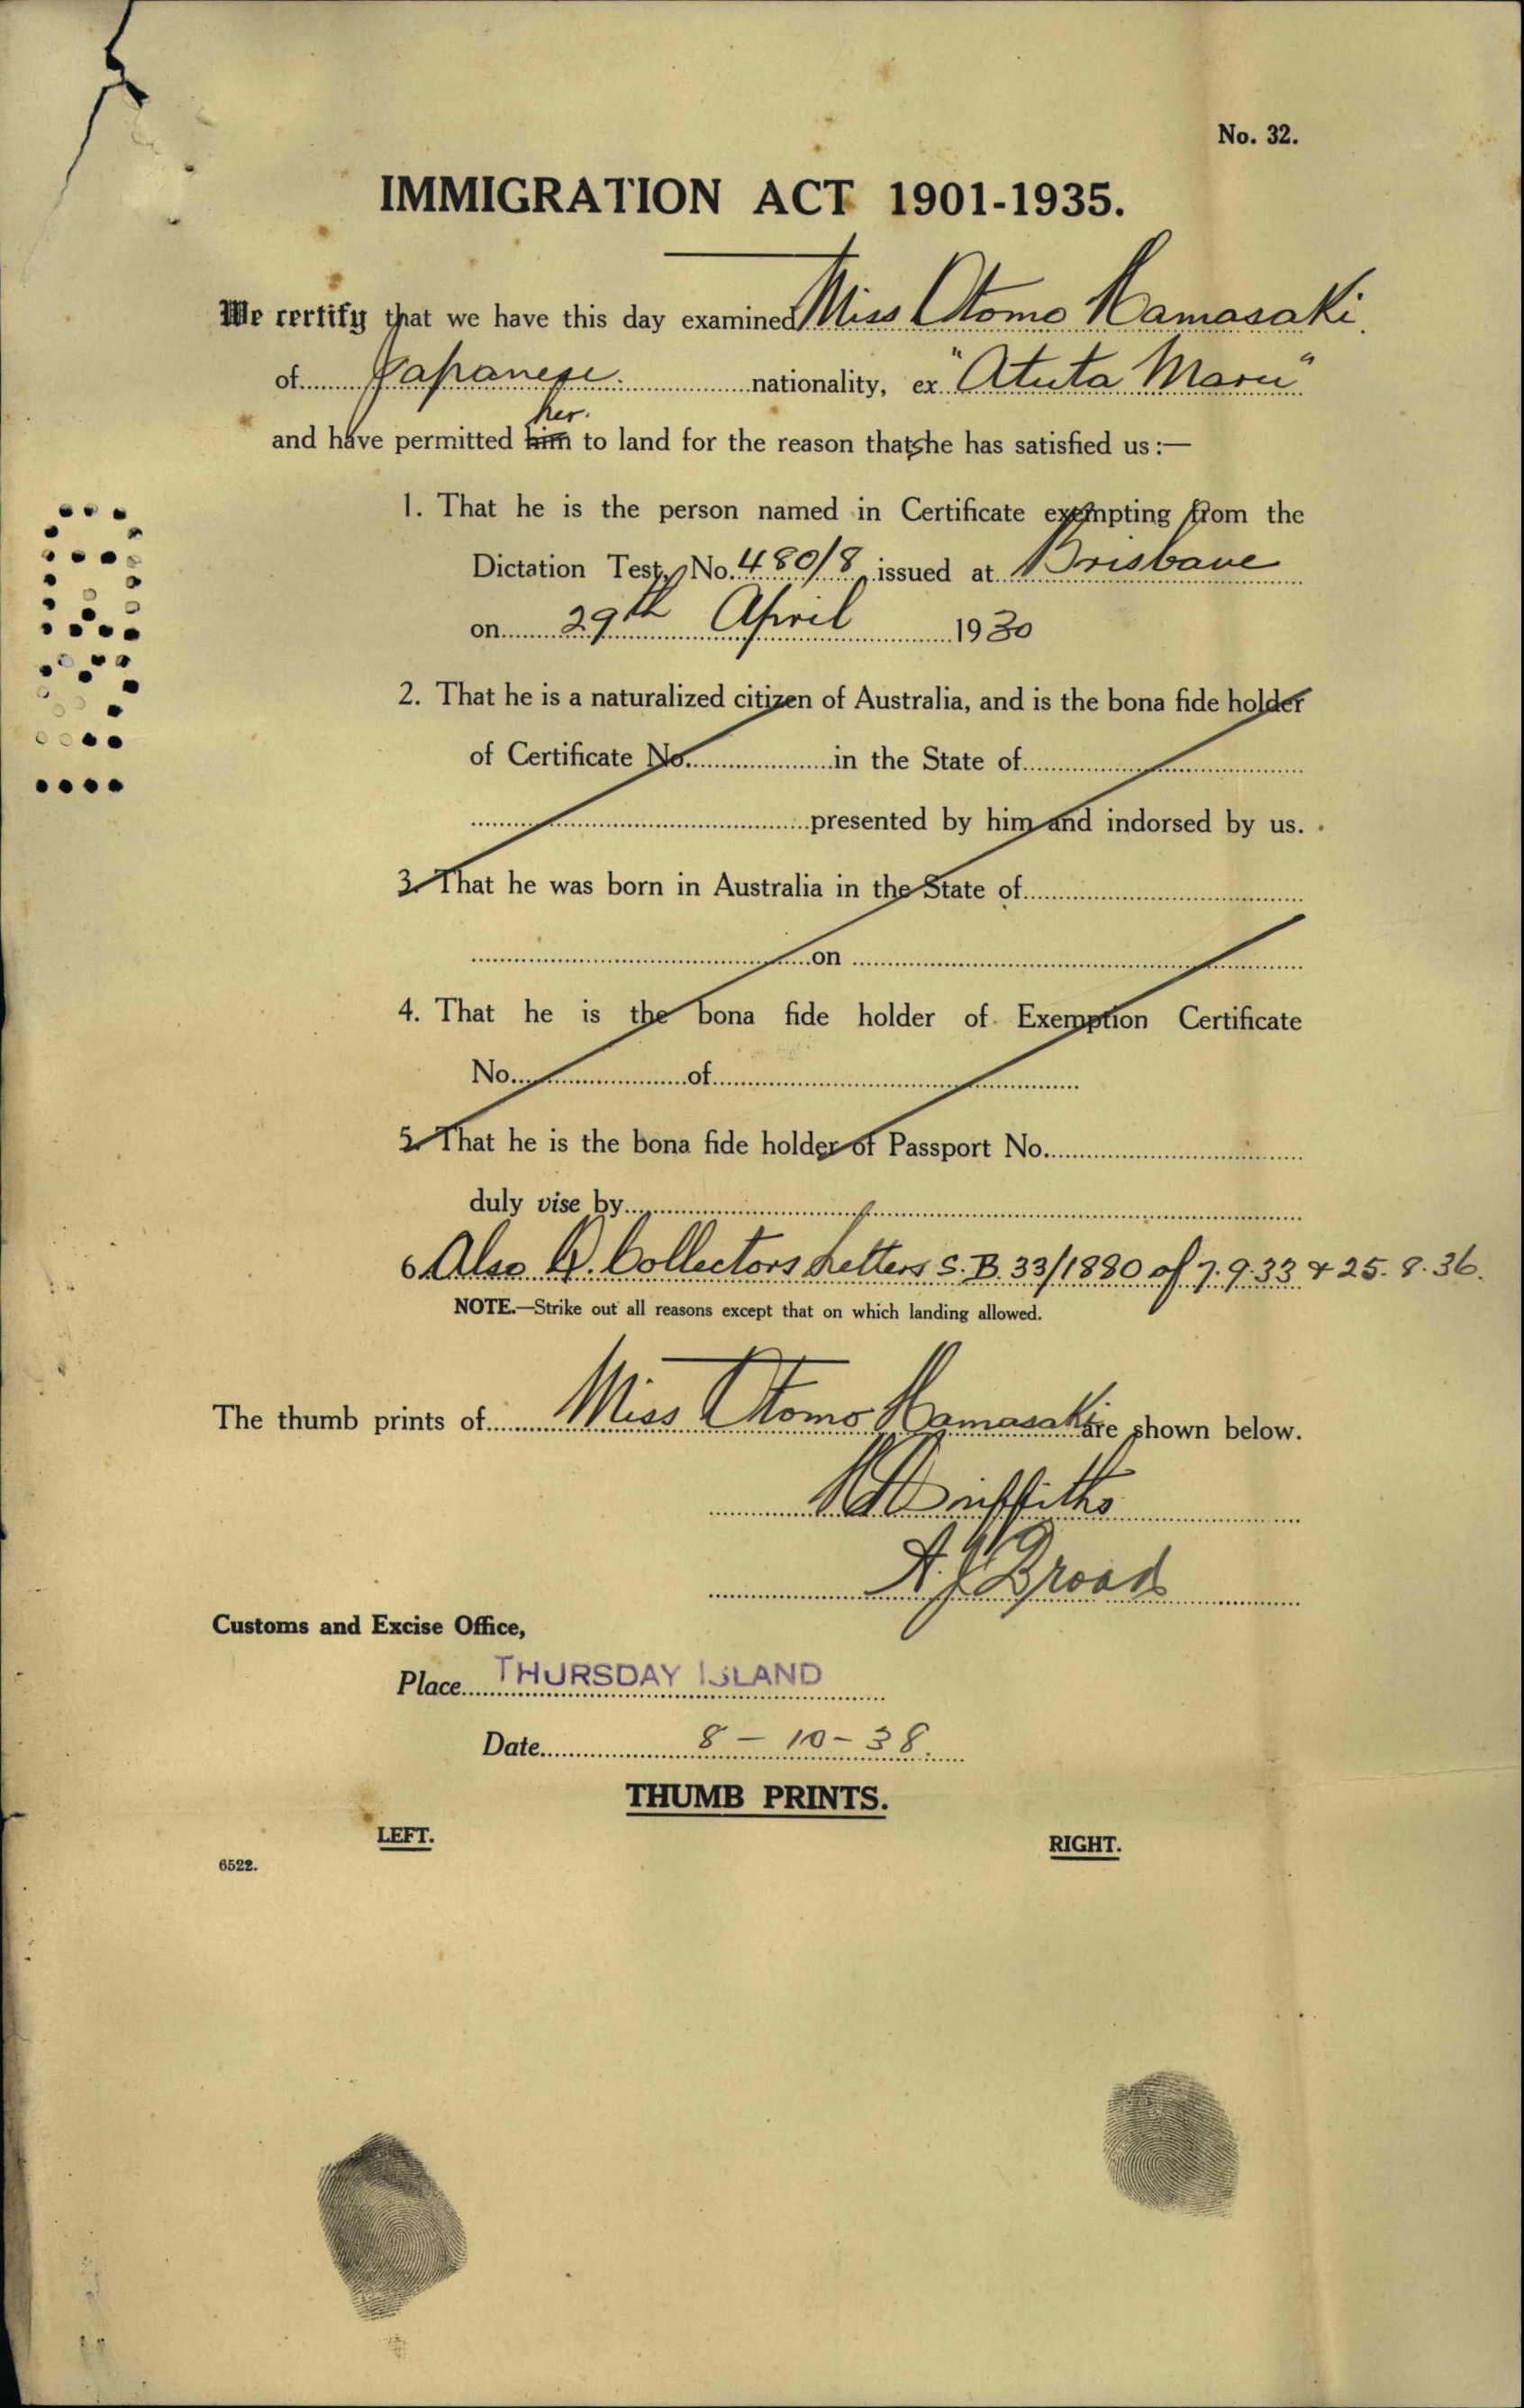 No. 32.
IMMIGRATION ACT 1901-1935.
We certify that we have this day examined Miss Otomo Hamasaki.
of Japanese. nationality, ex "Atuta Maru"
her.
and have permitted him to land for the reason that she has satisfied us:—
1. That he is the person named in Certificate exempting from the
Dictation Test, No. 480/8, issued at Brisbane
on 29th April 1930
2. That he is a naturalized citizen of Australia, and is the bona fide holder
of Certificate No. in the State of
presented by him and indorsed by us.
3. That he was born in Australia in the State of
on
4. That he is the bona fide holder of Exemption Certificate
No. of
5. That he is the bona fide holder of Passport No.
duly vise by
6. Also Collectors Letters S.B. 33/1880 of 7.9.33 & 25.8.36.
NOTE.—Strike out all reasons except that on which landing allowed.
The thumb prints of Miss Otomo Hamasaki are shown below.
Griffiths
A.J. Broad
Customs and Excise Office,
Place THURSDAY ISLAND
Date 8-10-38.
THUMB PRINTS.
LEFT. RIGHT.
6522.